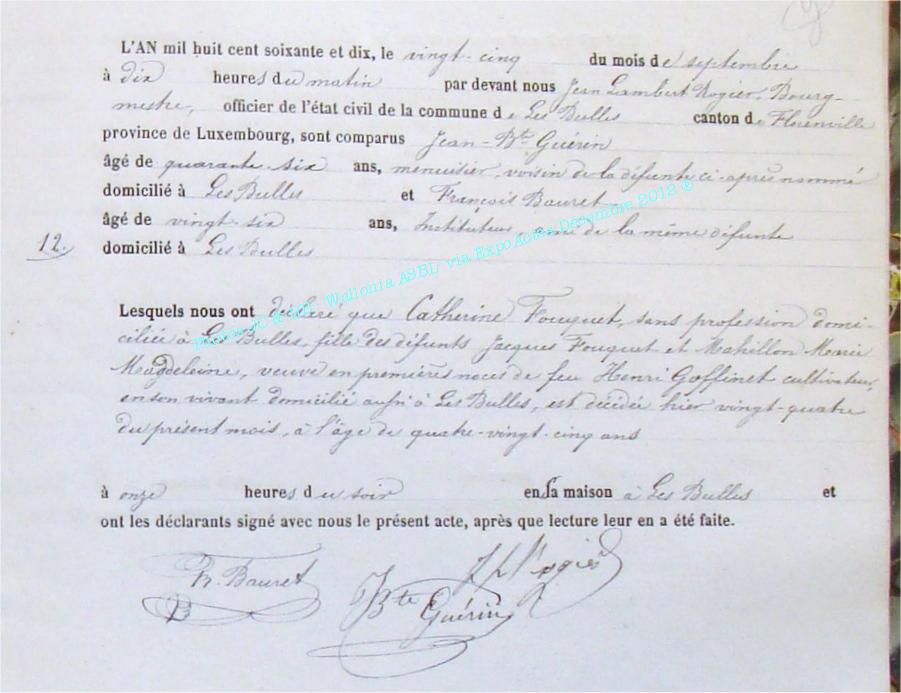 L'AN mil huit cent soixante et dix, le vingt-cinq du mois de septembre
à dix heures du matin par devant nous Jean Lambert Rogier, Bourg-
mestre, officier de l'état civil de la commune de Les Bulles canton de Florenville
province de Luxembourg, sont comparus Jean-Bte Guérin
âgé de quarante-six ans, menuisier, voisin de la défunte ci-après nommé
domicilié à Les Bulles et François Bauret
âgé de vingt-six ans, Instituteur, ami de la même défunte
12. domicilié à Les Bulles
Wallonia ASBL via Expo Actes Décembre 2012 ®
Lesquels nous ont déclaré que Catherine Fouquet, sans profession domi-
ciliée à Les Bulles, fille des défunts Jacques Fouquet et Mahillon Marie
Magdeleine, veuve en premières noces de feu Henri Goffinet cultivateur,
en son vivant domicilié aussi à Les Bulles, est décédée hier vingt-quatre
du présent mois, à l'âge de quatre-vingt-cinq ans
à onze heures du soir en sa maison à Les Bulles et
ont les déclarants signé avec nous le présent acte, après que lecture leur en a été faite.
Fr. Bauret
JBte Guérin
JL Rogier